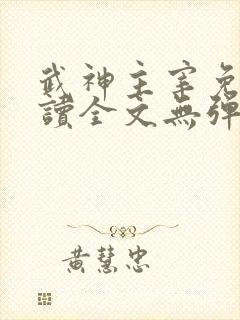 武神主宰免
讀全文無彈
黃慧忠